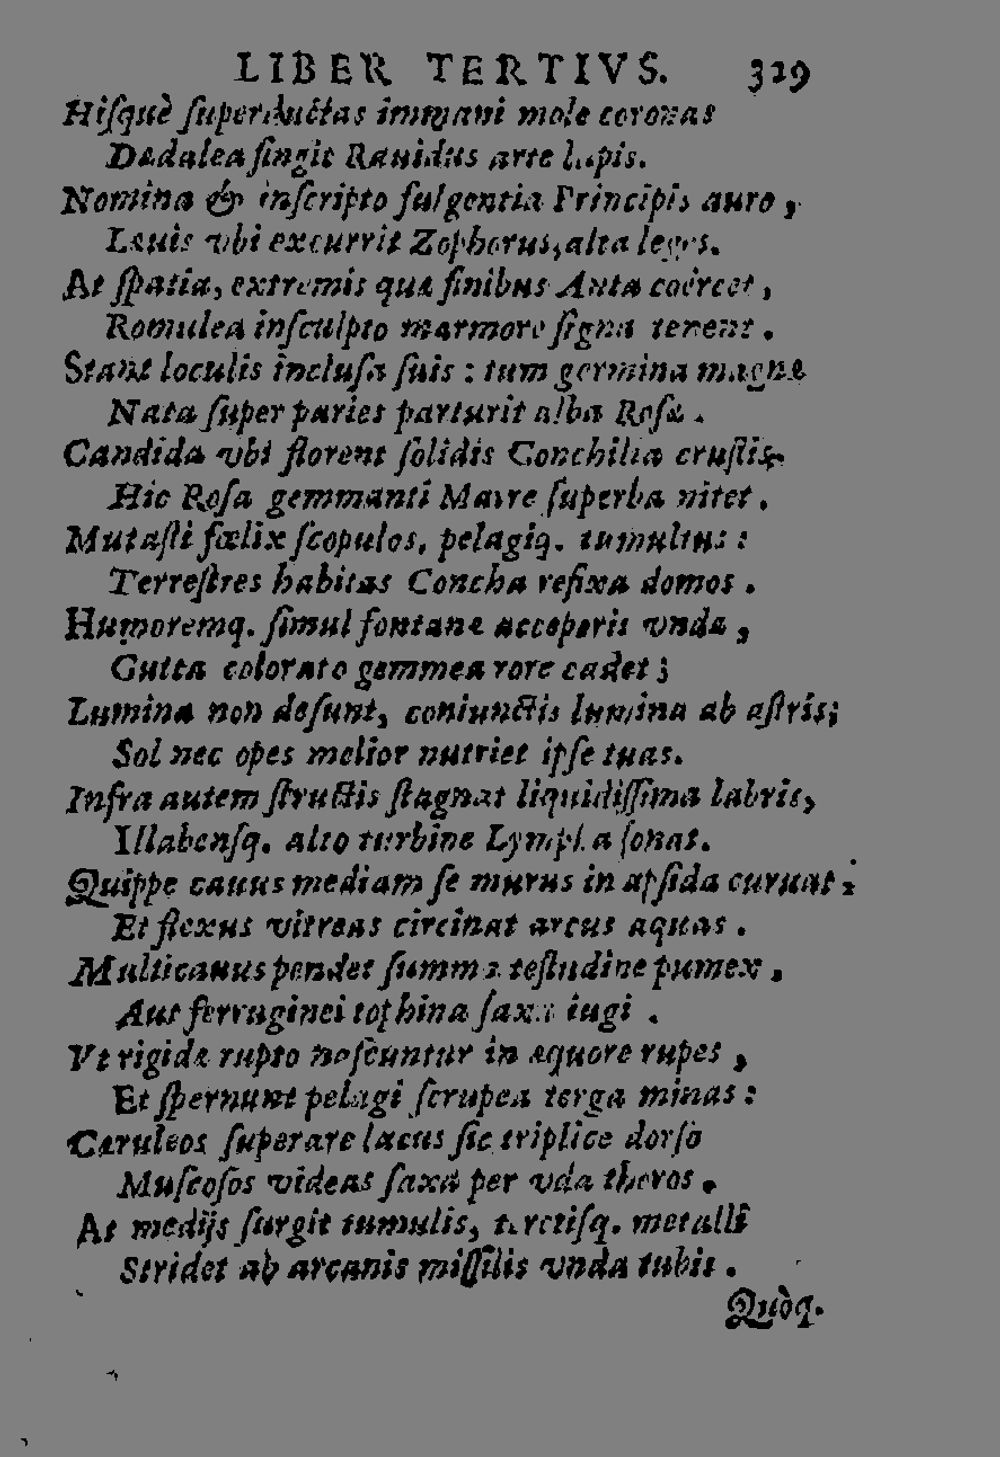 LIBER TERTIVS. 329
Hiſquè ſuperductas immani mole coronas
Dædalea fingit Rauidus arte lapis.
Nomina & inſcripto fulgentia Principis auro,
Læuis vbi excurrit Zophorus, alta leges.
At ſpatia, extremis quæ finibus Anta coërcet,
Romulea inſculpto marmore ſigna tenent.
Stant loculis incluſa ſuis: tum germina magnæ
Nata ſuper paries parturit alba Roſæ.
Candida vbi florent ſolidis Conchilia cruſtis,
Hic Roſa gemmanti Matre ſuperba nitet.
Mutaſti fœlix ſcopulos, pelagiq. tumultus:
Terreſtres habitas Concha refixa domos.
Humoremq. ſimul fontanæ acceperis vndæ,
Gutta colorato gemmea rore cadet;
Lumina non deſunt, coniunctis lumina ab aſtris;
Sol nec opes melior nutriet ipſe tuas.
Infra autem ſtructis ſtagnat liquidiſſima labris,
Illabenſq. alto turbine Lympha ſonat.
Quippe cauus mediam ſe murus in apſida curuat:
Et flexus vitreas circinat arcus aquas.
Multicauus pendet ſumma teſtudine pumex,
Aut ferruginei tophina ſaxa iugi.
Vt rigidæ rupto naſcuntur in æquore rupes,
Et ſpernunt pelagi ſcrupea terga minas:
Cæruleos ſuperare lacus ſic triplice dorſo
Muſcoſos videas ſaxa per vda thoros.
At medijs ſurgit tumulis, teretiſq. metalli
Stridet ab arcanis miſſilis vnda tubis.
Quòq.